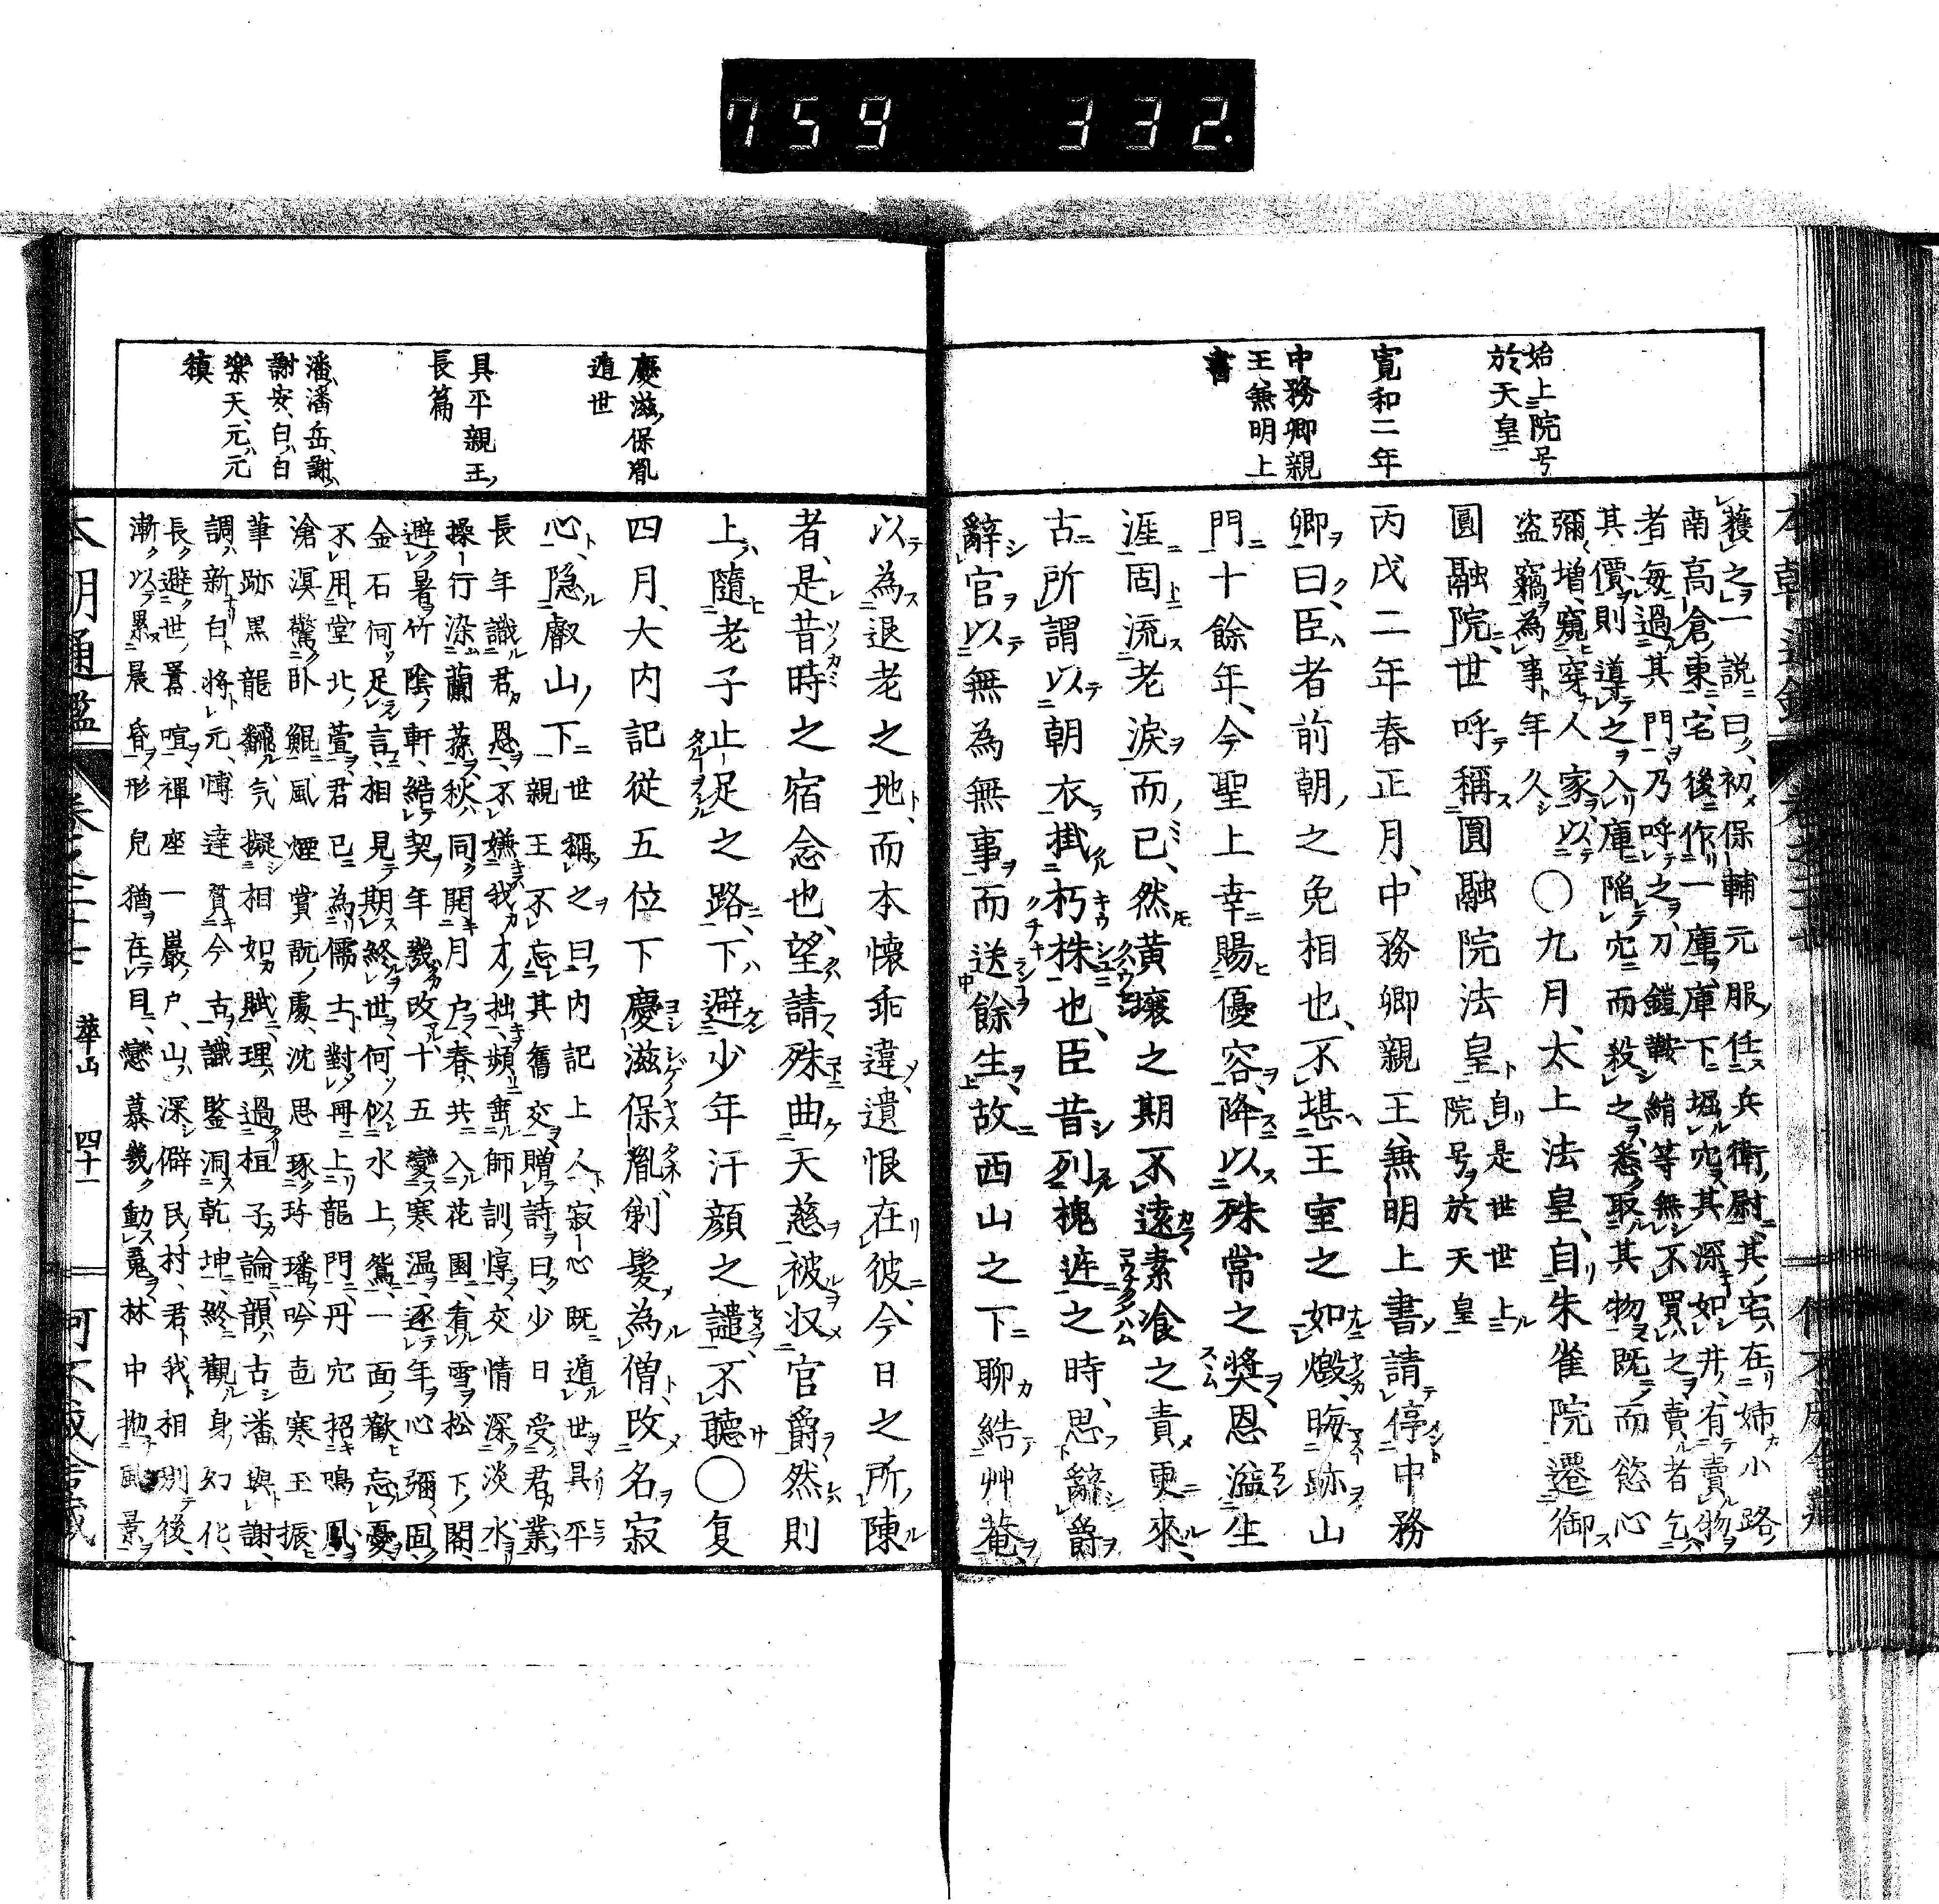 759 332.
始上院号
於天皇
寛和二年
中務卿親
王兼明上
書
獲之一説曰初保輔元服任兵衛尉其宅在姉小路
南高倉東宅後作一庫庫下堀穴其深如井有賣物
者毎過其門乃呼之刀鎧鞍絹等無不買之賣者乞
其價則導之入庫陥穴而殺之悉取其物既而慾心
彌増窺穿人家以
盗竊為事年久○九月太上法皇自朱雀院遷御
圓融院世呼稱圓融院法皇自是世世上
院号於天皇
丙戌二年春正月中務卿親王兼明上書請停中務
卿曰臣者前朝之免相也不堪王室之如燬晦跡山
門十餘年今聖上幸賜優容降以殊常之奬恩溢生
涯固流老淚而已然黄壤之期不遠素飡之責更來
古所謂以朝衣掛朽株也臣昔列槐庭之時思辭爵
辭官以無為無事而送餘生故西山之下聊結艸菴
慶滋保胤
遁世
具平親王
長篇
潘潘岳謝
謝安白白
樂天元元
稹
以為退老之地而本懷乖違遺恨在彼今日之所陳
者是昔時之宿念也望請殊曲天慈被収官爵然則
上隨老子止足之路下避少年汗顔之譴不聽○夏
四月大内記從五位下慶滋保胤剃髮為僧改名寂
心隠叡山下世稱之曰内記上人寂心既遁世具平
親王不忘其舊交贈詩曰少日受君業
長年識君恩不嫌我才拙頻垂師訓惇交情深淡水
操行染蘭蓀秋同開月戸春共入花園看雪松下閣
避暑竹陰軒結契年幾改十五變寒温逐年心彌固
金石何足言相見期終世何似水上鴛一面歡忘憂
不用堂北萱君已為儒士對冊上龍門丹穴招鳴鳳
滄溟驚卧鯤風煙賞翫處沈思琢玙璠吟苞寒玉振
筆跡黒龍飜气擬相如賦理過桓子論韻古潘與謝
調新白將元博達賀今古識鑒洞乾坤終觀身幻化
長避世囂喧禪座一巖戸山深僻民村君我相別後
漸以累晨昏形皃猶在目戀慕幾動寃林中抛風景
本朝通鑑 卷 華山 四十一